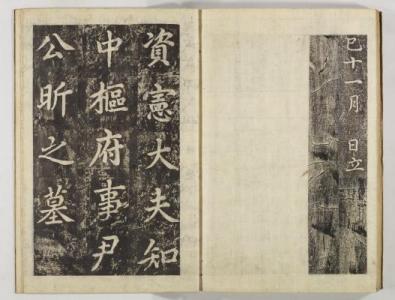 巳十一月 日立
資憲大夫知
中樞府事尹
公昕之墓